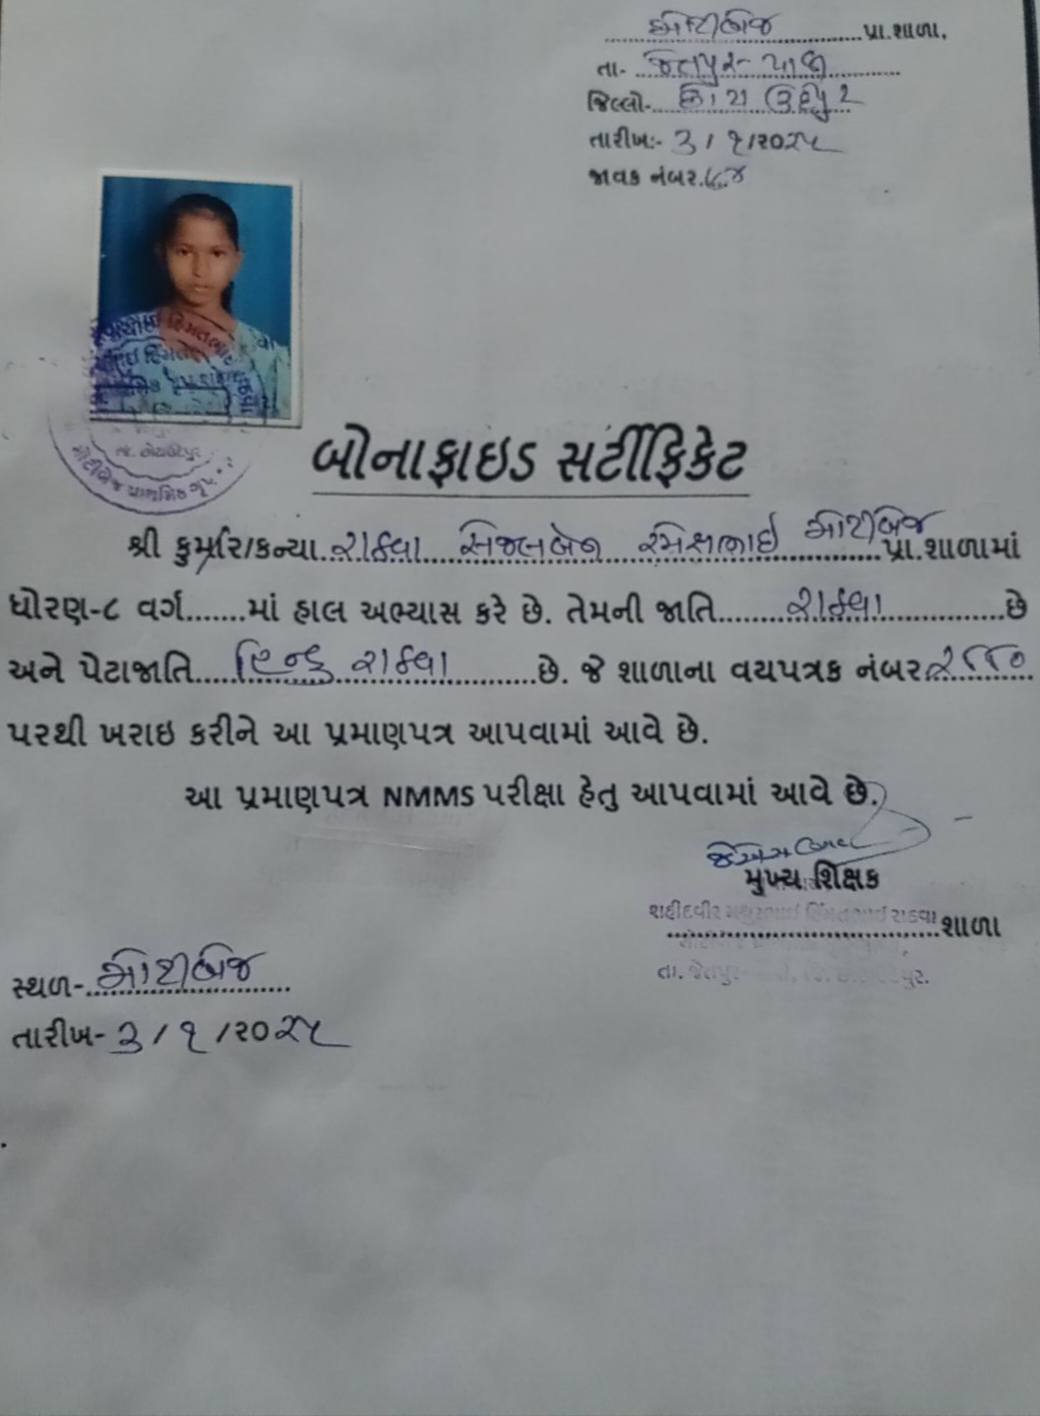 મોટીબેજ પ્રા.શાળા,
તા- જેતપુર-પાવી
જિલ્લો- છોટાઉદેપુર
તારીખ:- ૩/૧/૨૦૨૫
જાવક નંબર.
બોનાફાઇડ સર્ટીફિકેટ
શ્રી કુમારિ/કન્યા રાઠવા સેજલબેન રમેશભાઈ મોટીબેજ પ્રા.શાળામાં
ધોરણ-૮ વર્ગ.......માં હાલ અભ્યાસ કરે છે. તેમની જાતિ રાઠવા છે
અને પેટાજાતિ હિન્દુ રાઠવા છે. જે શાળાના વયપત્રક નંબર
પરથી ખરાઇ કરીને આ પ્રમાણપત્ર આપવામાં આવે છે.
આ પ્રમાણપત્ર NMMS પરીક્ષા હેતુ આપવામાં આવે છે.
મુખ્ય શિક્ષક
શહીદવીર હિંમતભાઈ રાઠવા
શાળા
તા. જેતપુર
સ્થળ- મોટીબેજ
તારીખ- ૩/૧/૨૦૨૫